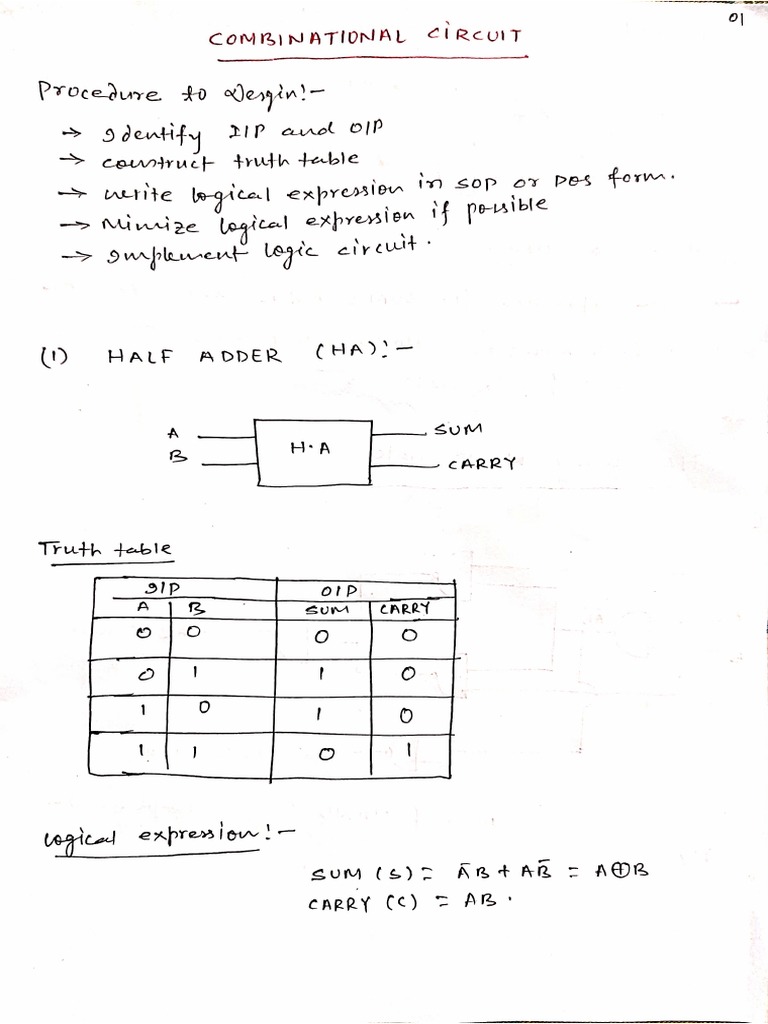 01
COMBINATIONAL CIRCUIT
Procedure to Desgin:-
→ Identify I/P and O/P
→ construct truth table
→ write logical expression in SOP or POS form.
→ Minimize logical expression if possible
→ Implement logic circuit.
(1) HALF ADDER (HA):-
A H.A SUM
B CARRY
Truth table
I/P O/P
A B SUM CARRY
0 0 0 0
0 1 1 0
1 0 1 0
1 1 0 1
logical expression:-
SUM (S) = ĀB + AB̄ = A⊕B
CARRY (C) = AB.